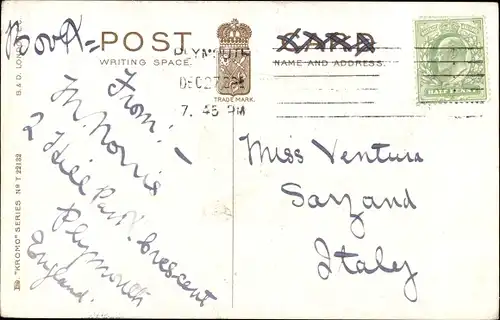 POST CARD
WRITING SPACE.
NAME AND ADDRESS.
TRADE MARK.
PLYMOUTH
DEC 27
7. 45 PM
HALF PENNY
From: -
M. Norris
2 Hill Park Crescent
Plymouth
England.
Miss Ventura
Sarzand
Italy
THE "KROMO" SERIES No T 22132
B. & D. LON